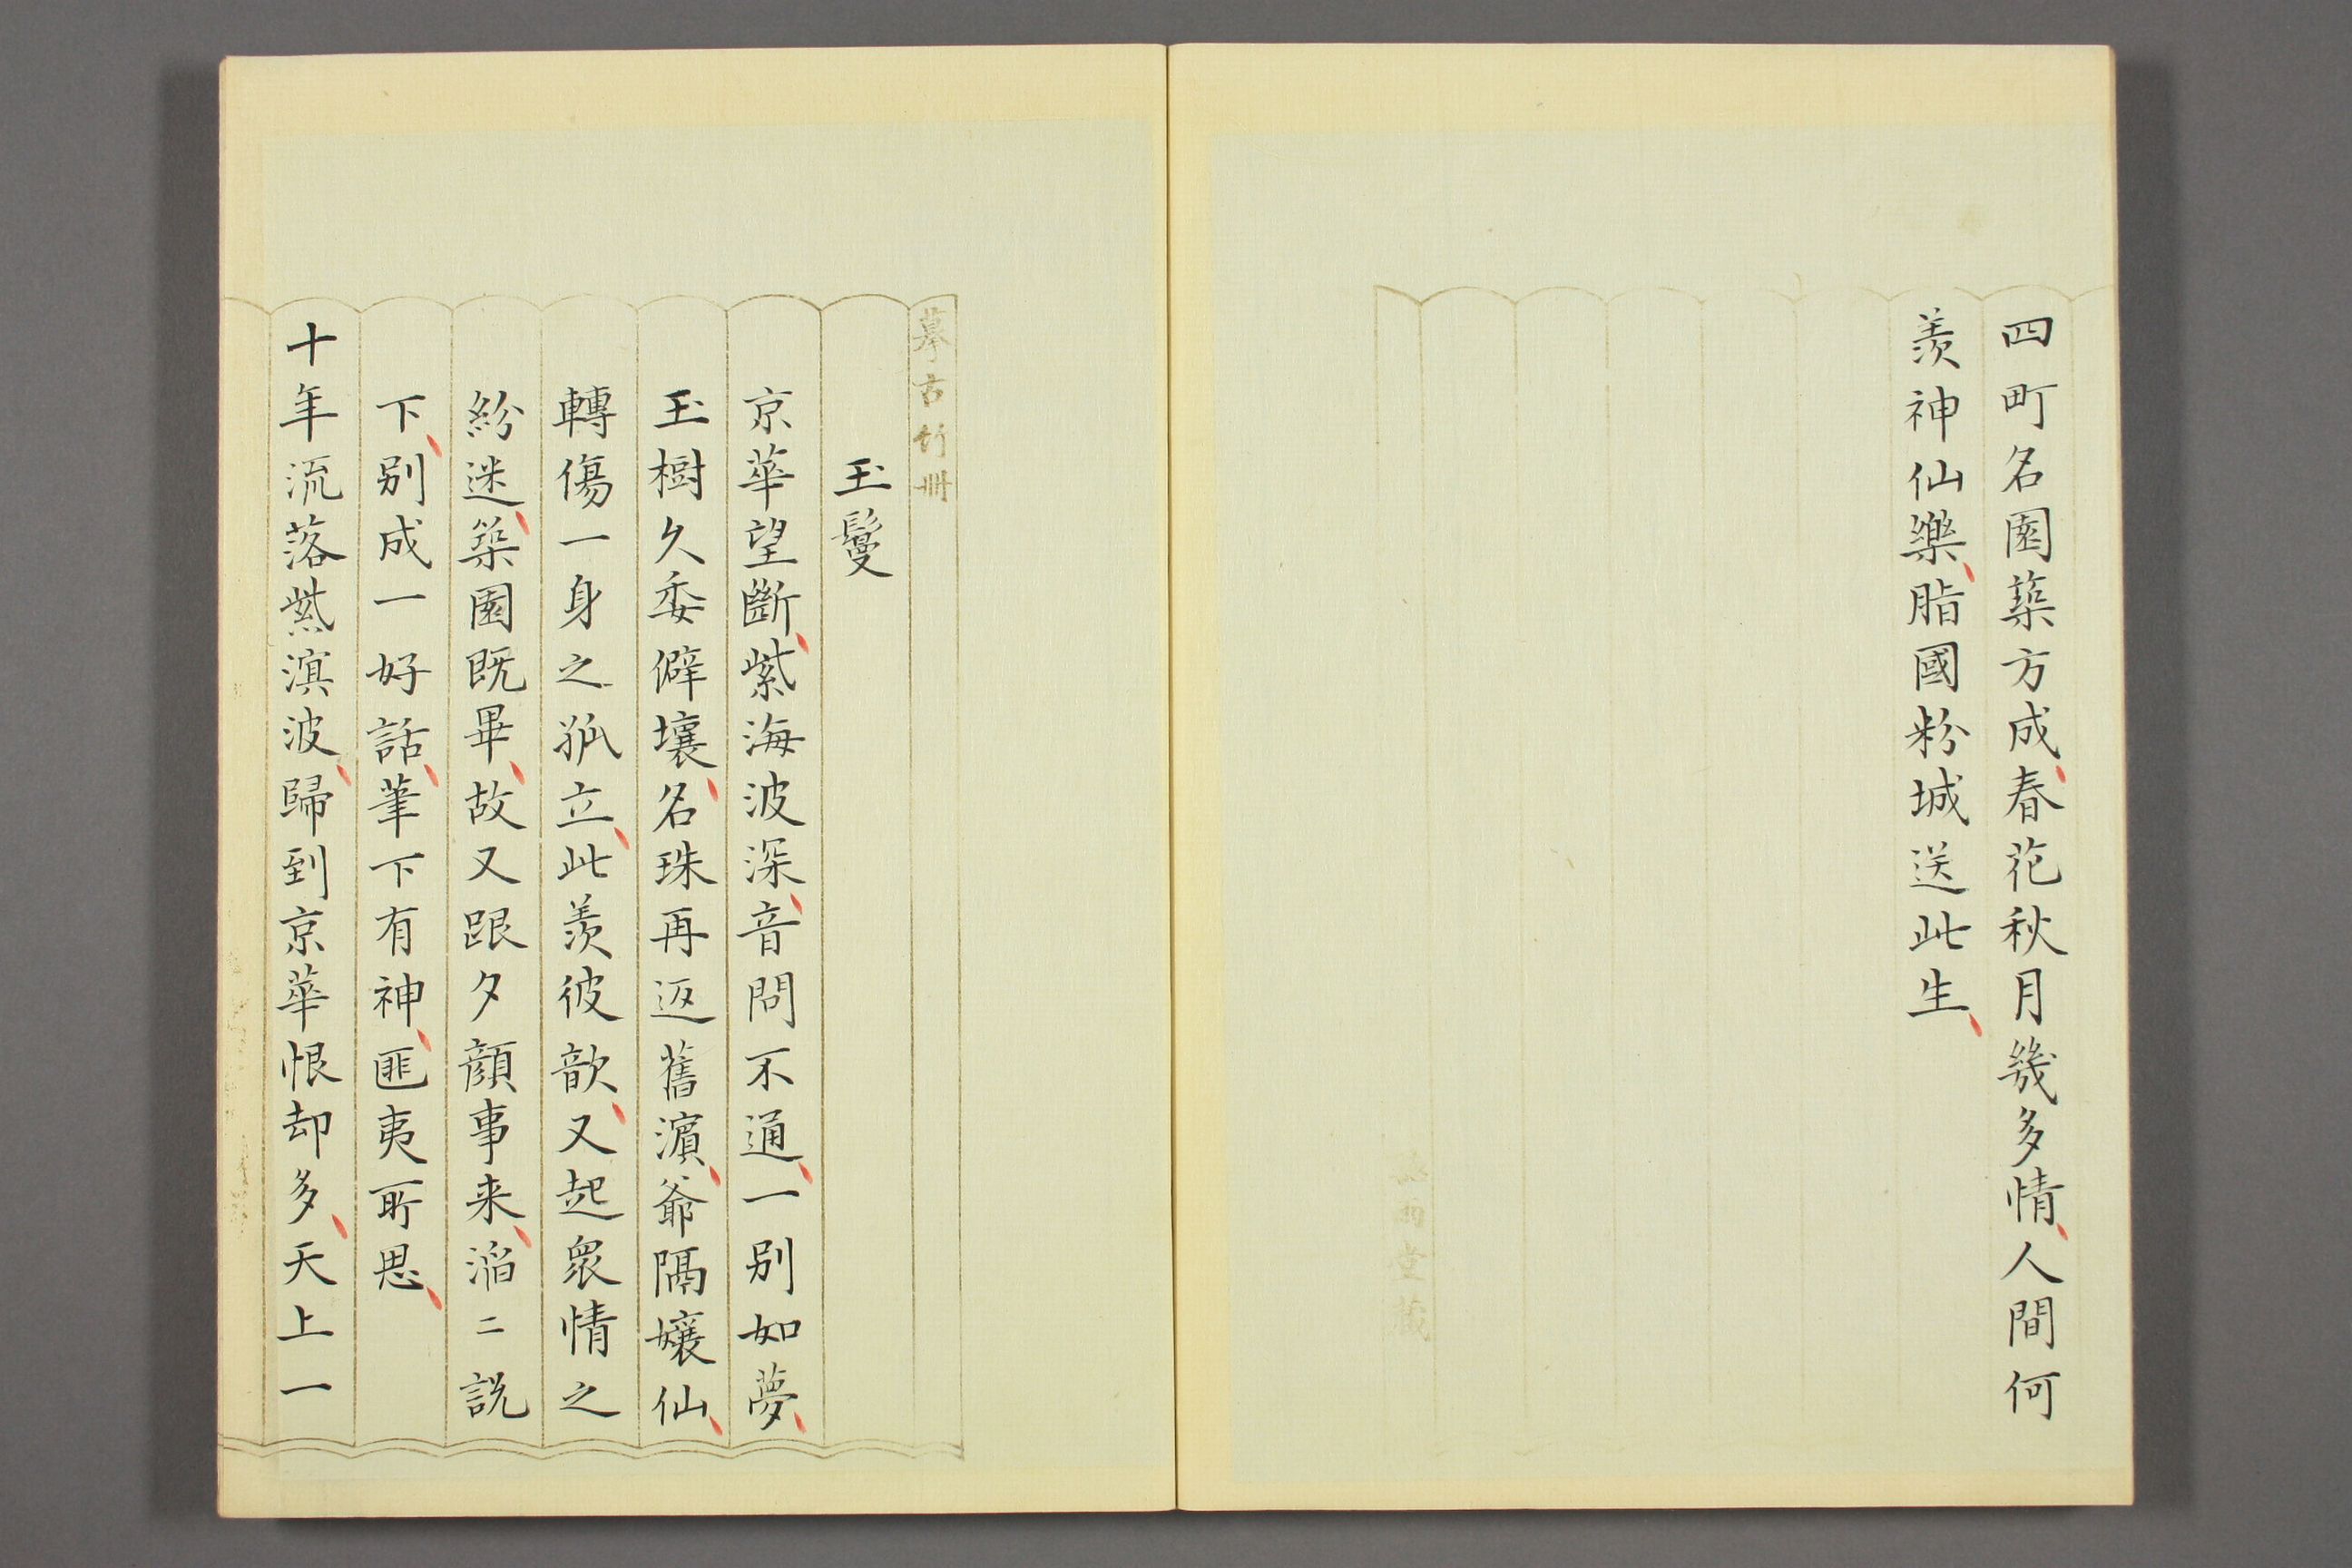 四町名園築方成春花秋月幾多情人間何
羨神仙樂脂國粉城送此生
摹古竹冊
玉鬘
京華望斷紫海波深音問不通一別如夢
玉樹久委僻壤名珠再返舊濵爺隔孃仙
轉傷一身之孤立此羨彼歆又起衆情之
紛迷築園既畢故又跟夕顔事来滔二説
下別成一好話筆下有神匪夷所思
十年流落紫溟波歸到京華恨却多天上一